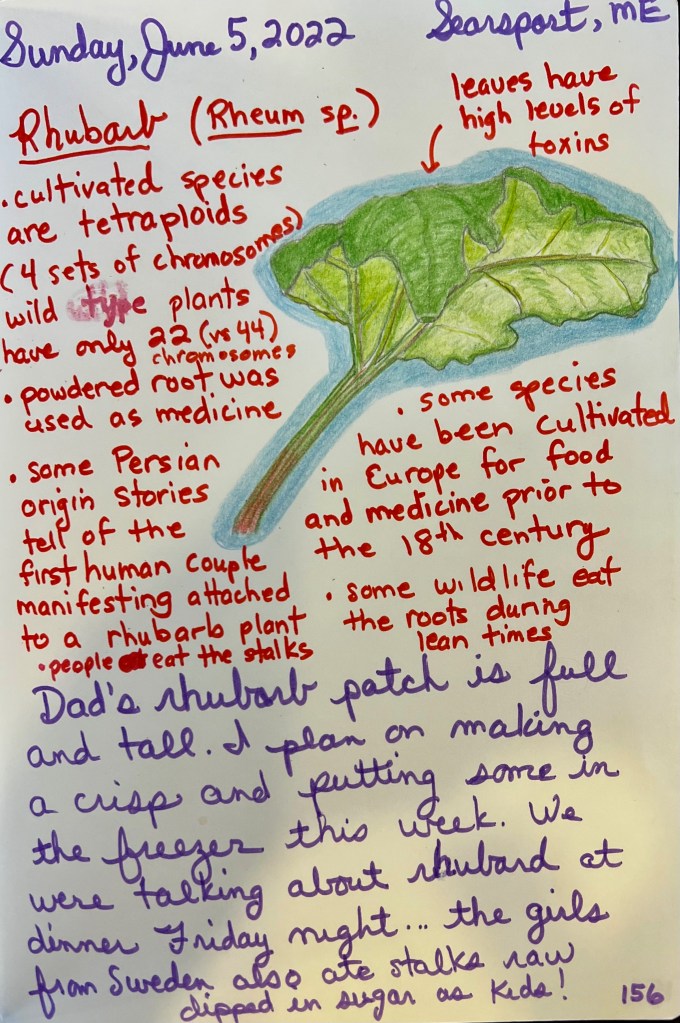 Sunday, June 5, 2022
Searsport, ME
Rhubarb (Rheum sp.)
leaves have
high levels of
toxins
• cultivated species
are tetraploids
(4 sets of chromosomes)
wild type plants
have only 22 (vs 44)
chromosomes
• powdered root was
used as medicine
• some Persian
origin stories
tell of the
first human couple
manifesting attached
to a rhubarb plant
• people eat the stalks
• some species
have been cultivated
in Europe for food
and medicine prior to
the 18th century
• some wildlife eat
the roots during
lean times
Dad's rhubarb patch is full
and tall. I plan on making
a crisp and putting some in
the freezer this week. We
were talking about rhubard at
dinner Friday night... the girls
from Sweden also ate stalks raw
dipped in sugar as kids!
156